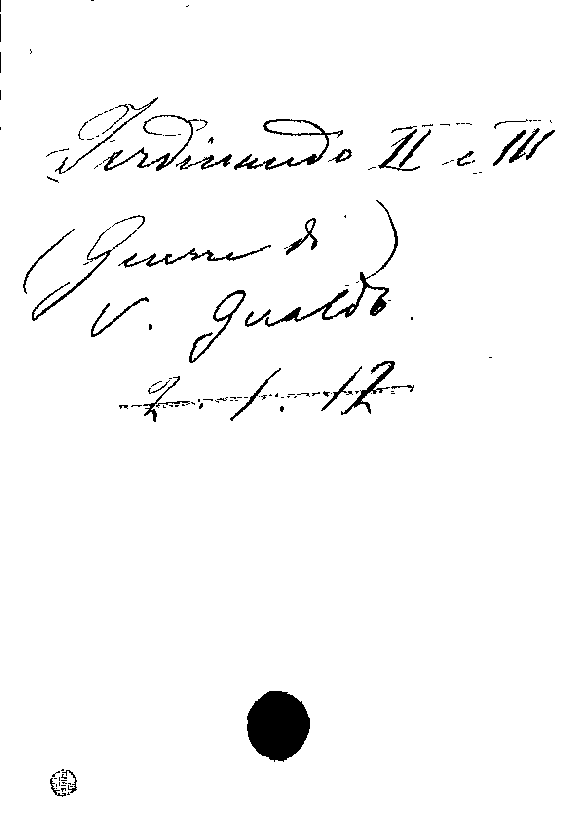 Ferdinando II e III
(Guerre di)
V. Gualdo.
2.1.12